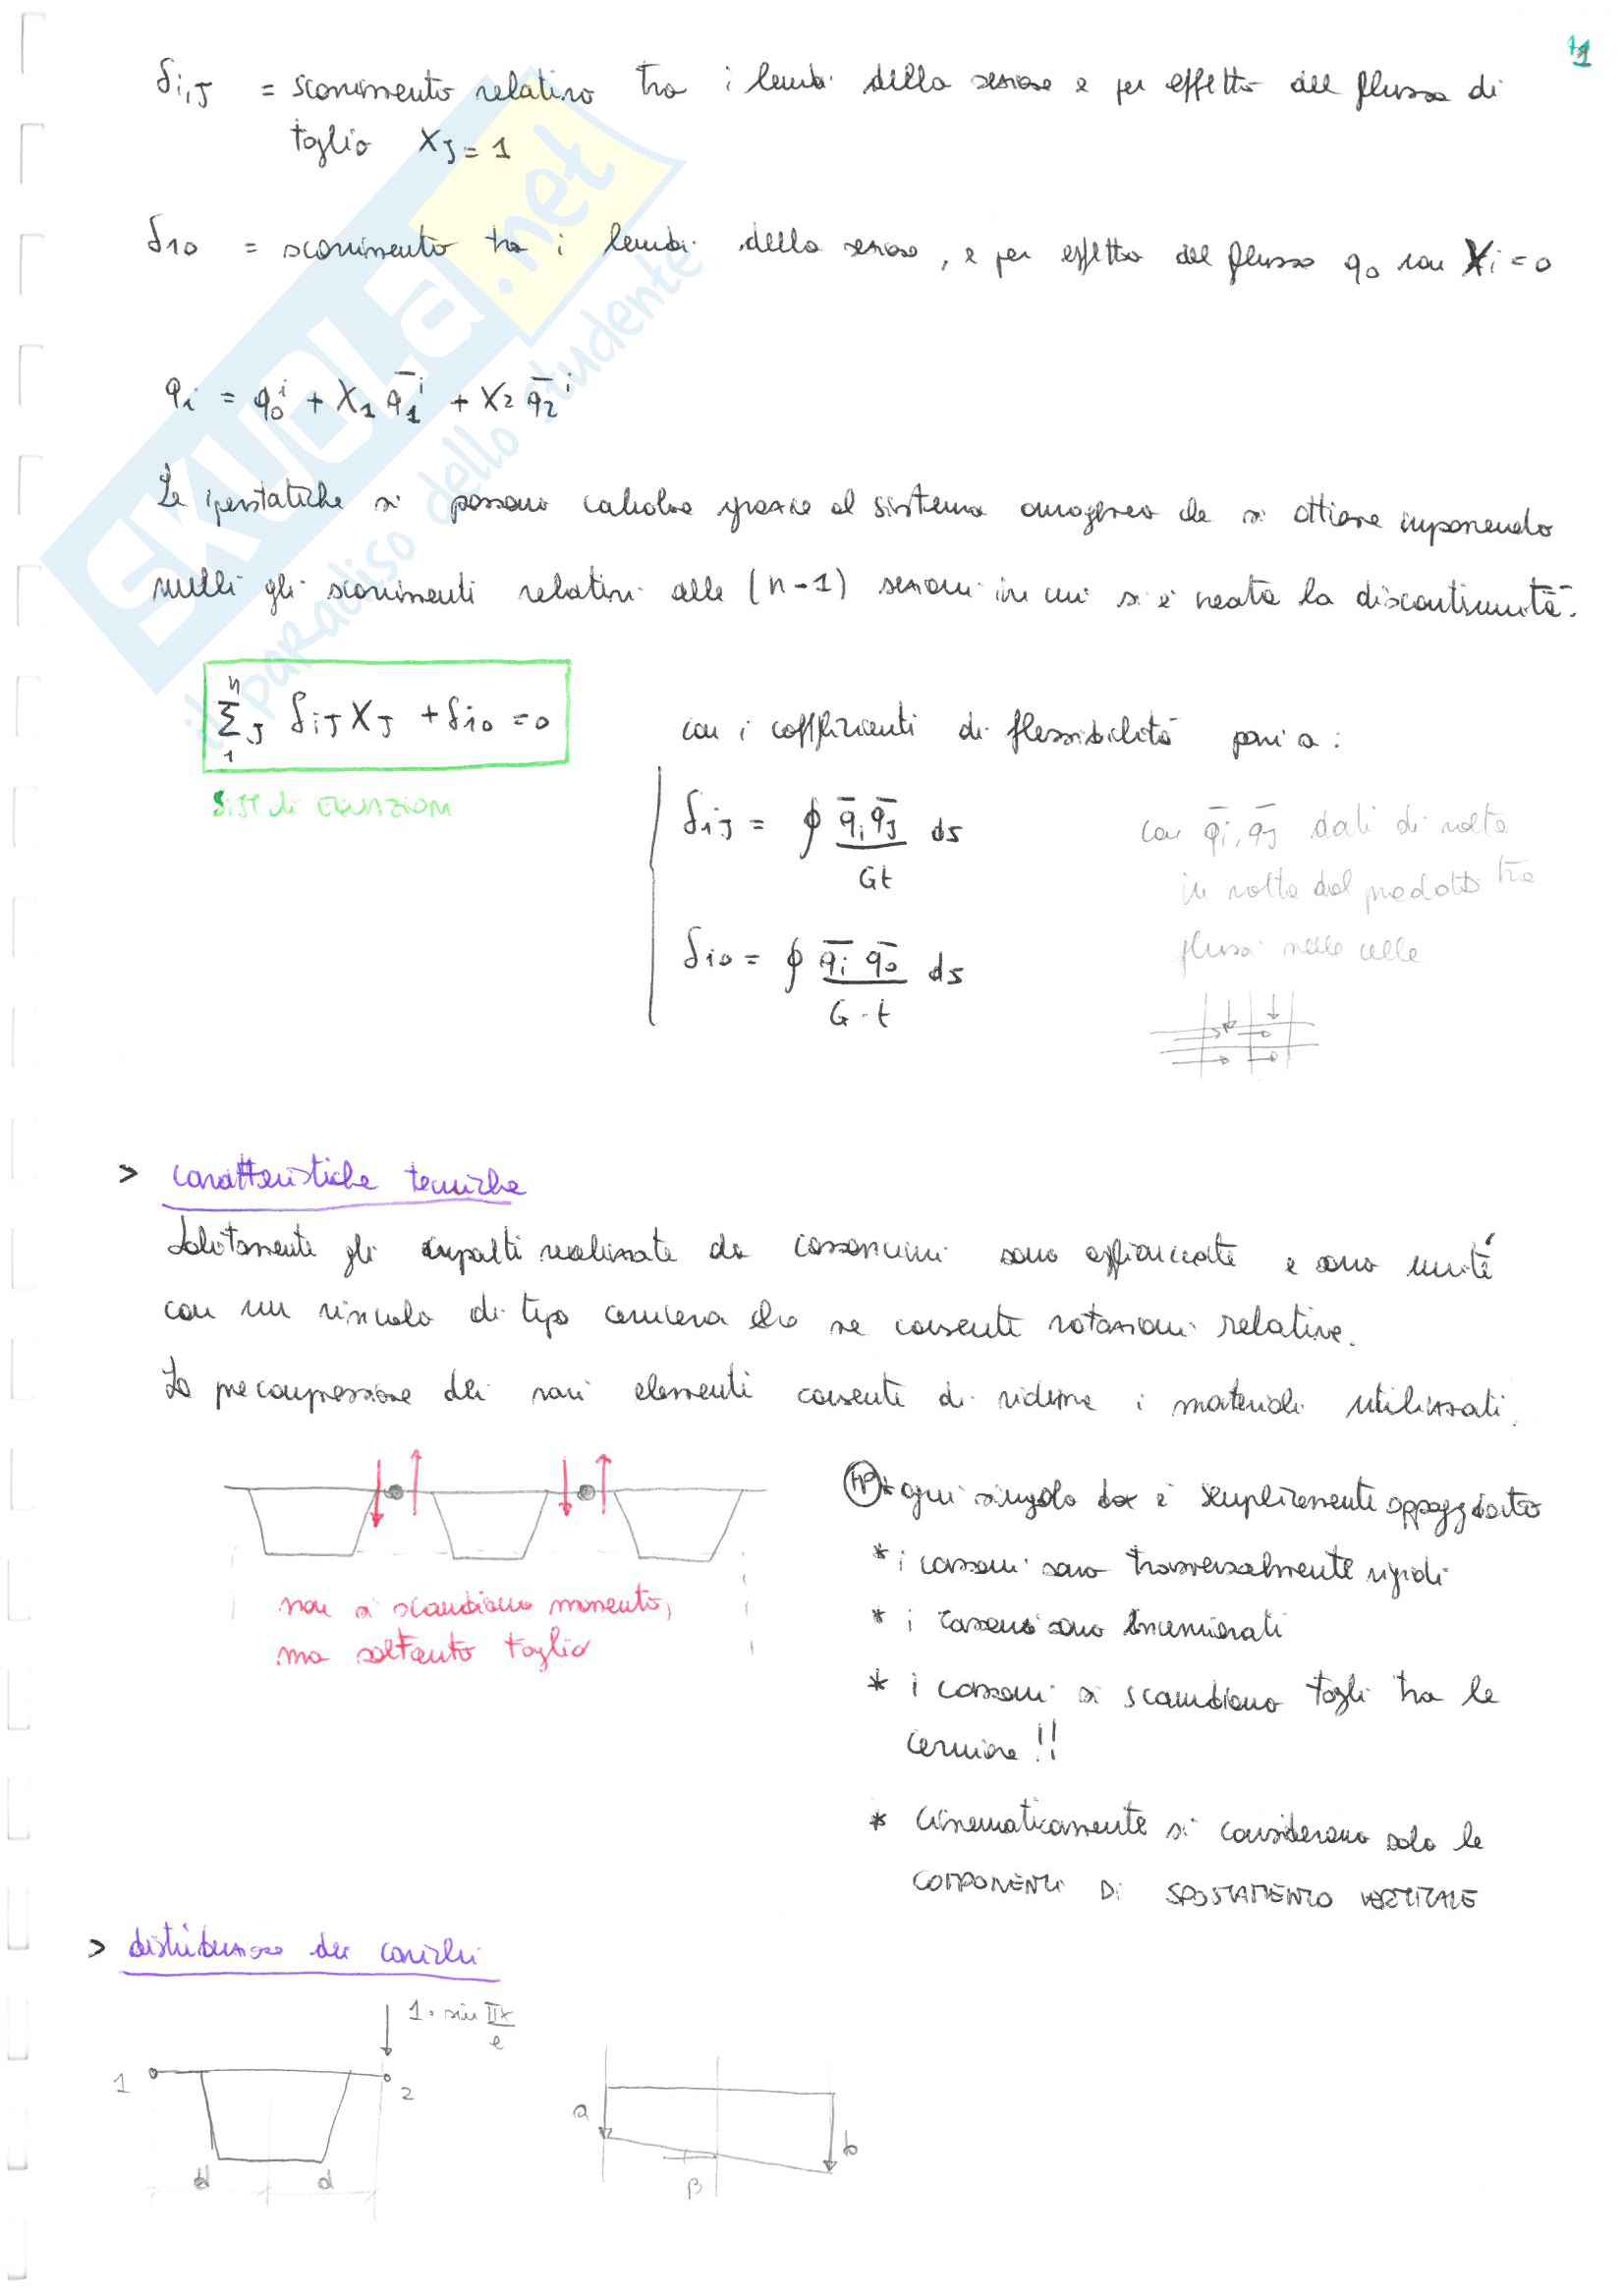 71
δi,J = scorrimento relativo tra i lembi della sezione e per effetto del flusso di
taglio XJ = 1
δ10 = scorrimento tra i lembi della sezione, e per effetto del flusso q0 con Xi = 0
qi = q0^i + X1 q̄1^i + X2 q̄2^i
Le iperstatiche si possono calcolare grazie al sistema omogeneo che si ottiene imponendo
nulli gli scorrimenti relativi alle (n-1) sezioni in cui si è creata la discontinuità.
n
Σ J δiJ XJ + δi0 = 0
1
SIST di EQUAZIONI
con i coefficienti di flessibilità pari a:
δiJ = ∮ q̄i q̄J ds
Gt
δi0 = ∮ q̄i q̄0 ds
G·t
con q̄i, q̄J dati di volta
in volta dal prodotto tra
flussi nelle celle
> caratteristiche tecniche
Solitamente gli impalti realizzate da cassoncini sono affiancate e sono unite
con un vincolo di tipo cerniera che ne consente rotazioni relative.
La precompressione dei vari elementi consente di ridurre i materiali utilizzati.
non si scambiano momento,
ma soltanto taglio
HP * ogni singolo box è semplicemente appoggiato
* i cassoni sono trasversalmente rigidi
* i cassoni sono incernierati
* i cassoni si scambiano tagli tra le
cerniere !!
* Cinematicamente si considerano solo le
COMPONENTI DI SPOSTAMENTO VERTICALE
> distribuzione dei carichi
1 · sin πx
e
1
2
d d
a
b
β
SKUOLA.net
il paradiso dello studente